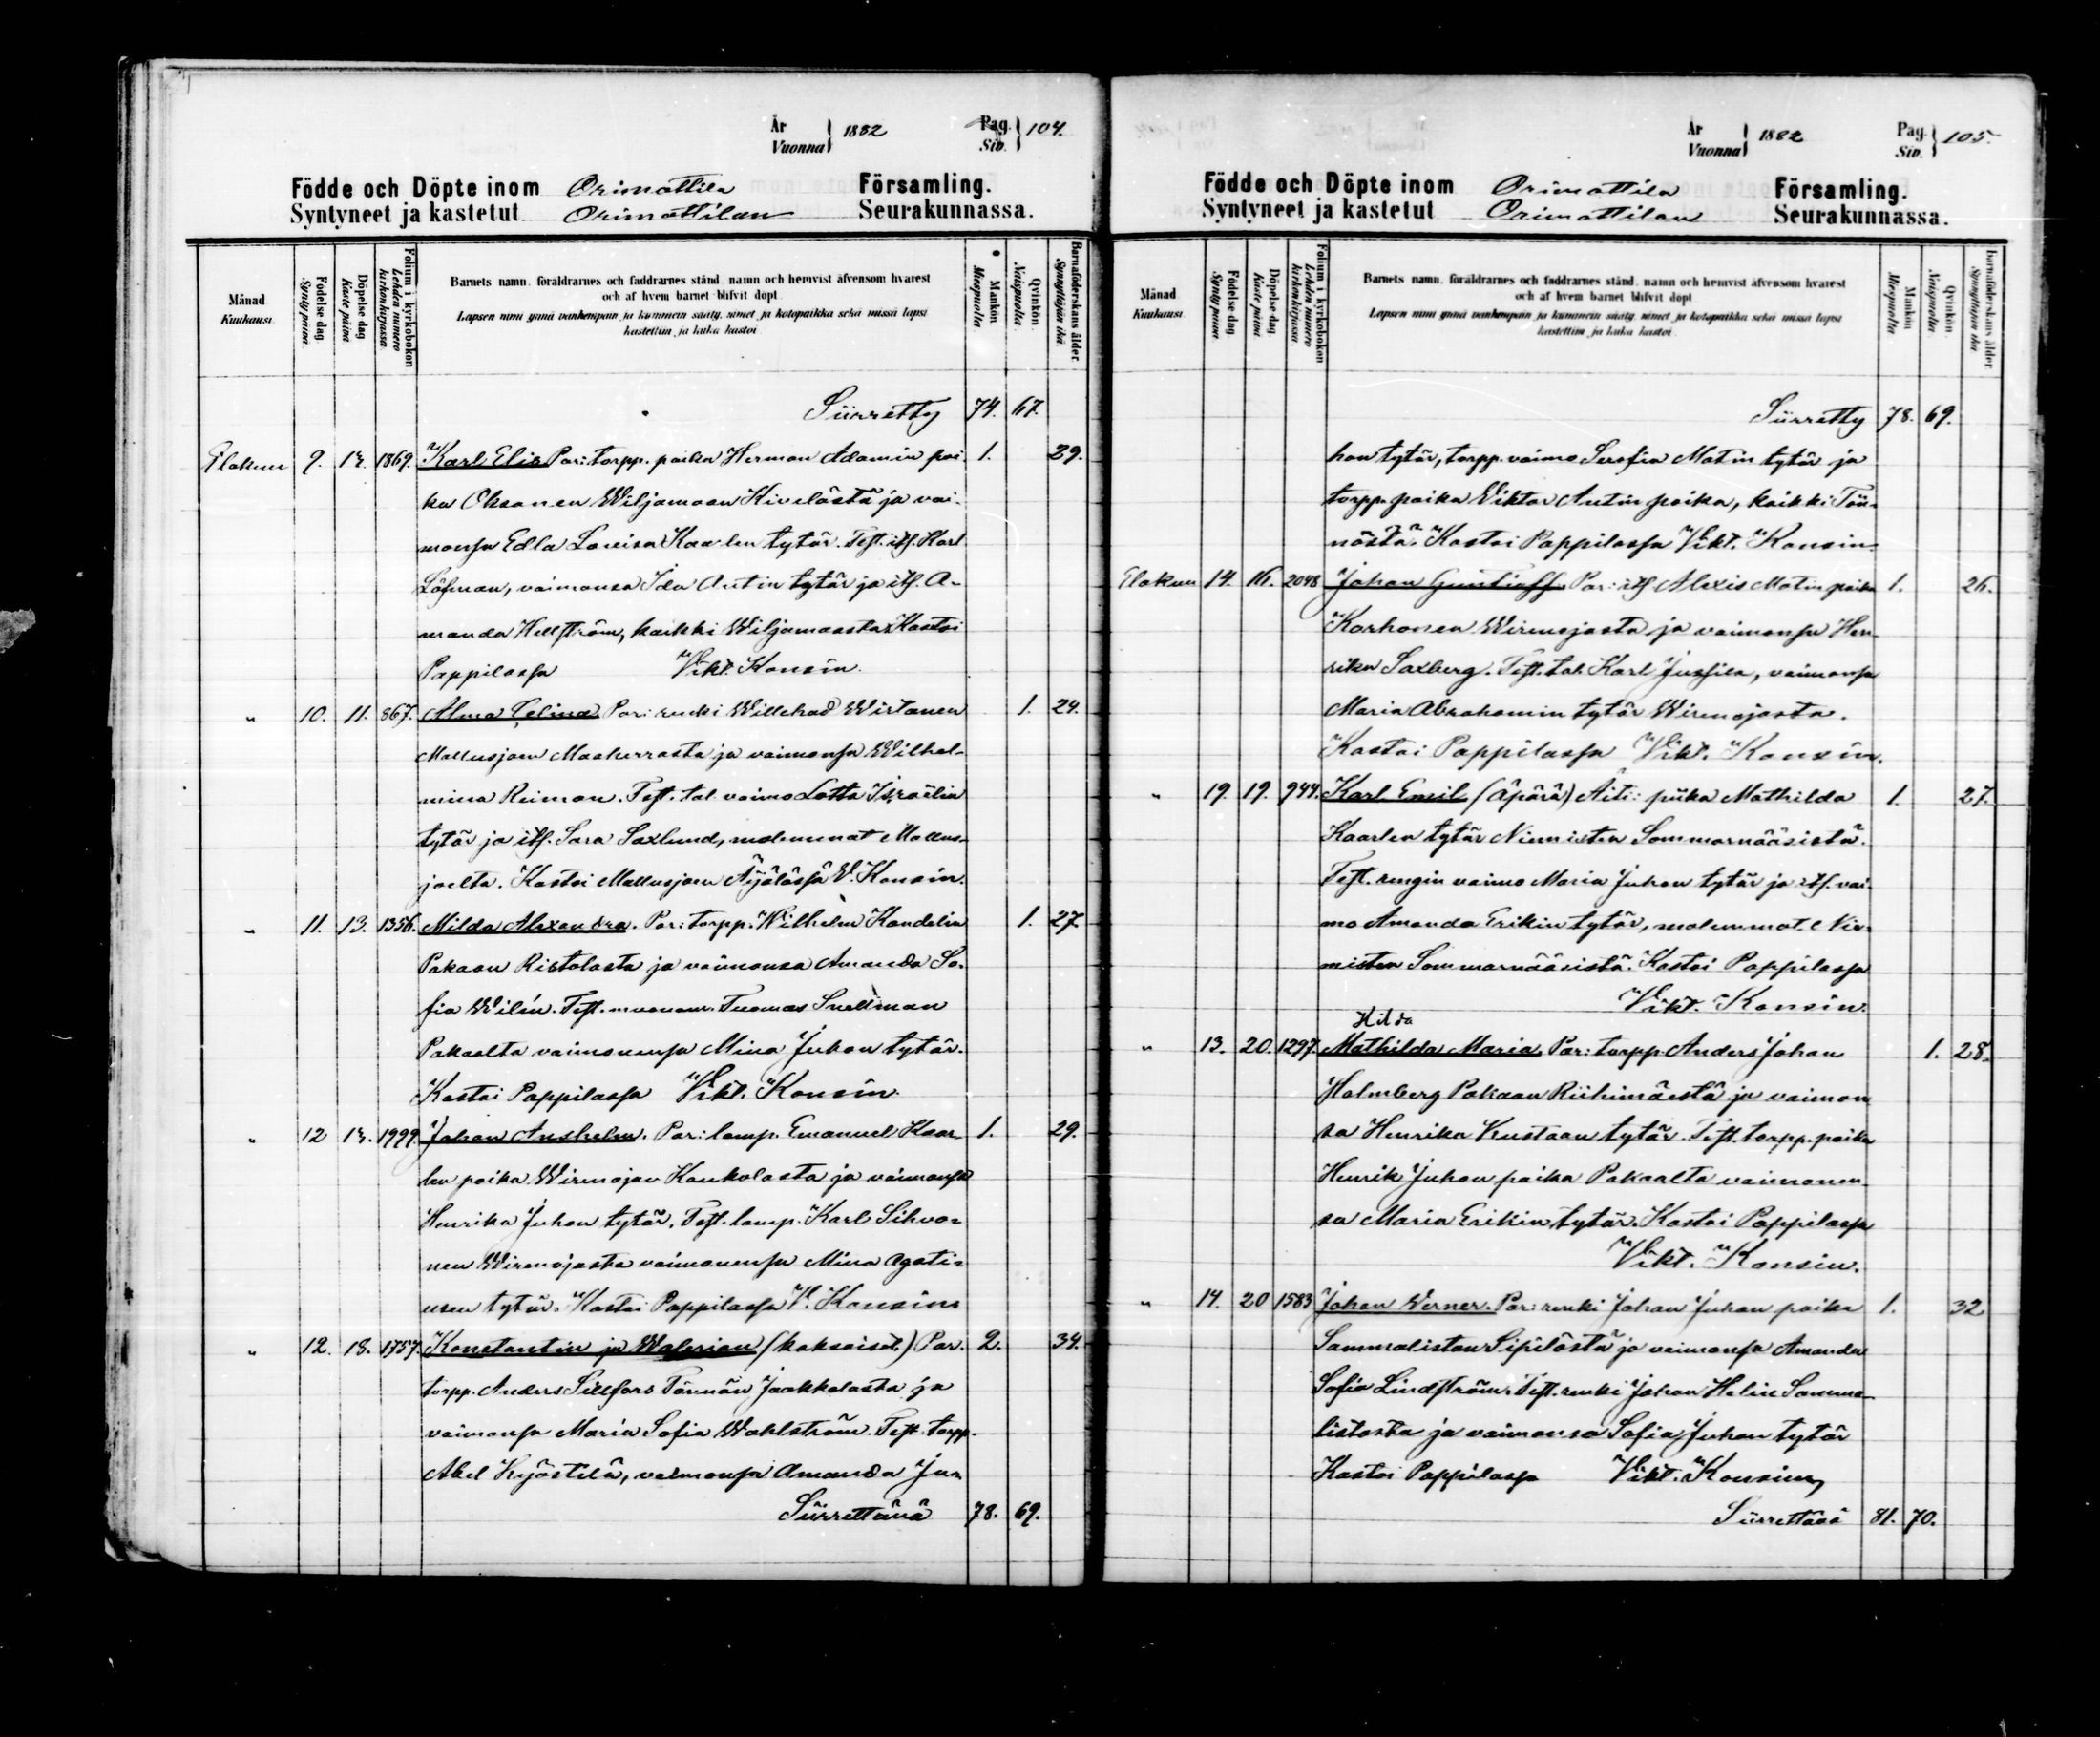 År Vuonna } 1882 Pag. Siv. } 104.
Födde och Döpte inom Orimattila Församling.
Syntyneet ja kastetut Orimattilan Seurakunnassa.
Månad Kuukausi.
Födelse dag. Synty päivä.
Döpelse dag Kaste päivä
Folium i kyrkoboken Lehden numero kirkon kirjassa
Barnets namn, föräldrarnes och faddrarnes stånd, namn och hemvist äfvensom hvarest
och af hvem barnet blifvit döpt.
Lapsen nimi ynnä vanhempain ja kummein sääty, nimet ja kotopaikka sekä missä lapsi
kastettiin ja kuka kastoi.
Mankön Miespuolta
Qvinkön. Naispuolta.
Barnaföderskans ålder. Synnyttäjän ikä.
Siirretty 74. 67.
Elokuu 9. 14. 1869. Karl Elis Par: torpp. poika Herman Adamin poi- 1. 29.
ka Oksanen Wiljamaan Kivelästä ja vai-
monsa Edla Lovisa Kaarlen tytär. Test. itf. Karl
Löfman, vaimonsa Ida Antin tytär ja itf. A-
manda Hellström, kaikki Wiljamaasta. Kastoi
Pappilassa Vikt. Konsin.
" 10. 11. 867. Alma Celina Par: renki Willehad Wirtanen 1. 24.
Mallusjoen Maakerrasta ja vaimonsa Wilhel-
mina Reiman. Test. tal. vaimo Lotta Israëlin
tytär ja itf. Sara Saxlund, molemmat Mallus-
joelta. Kastoi Mallusjoen Äijälässä V. Konsin.
" 11. 13. 1356. Milda Alexandra. Par: torpp. Wilhelm Kandelin 1. 27
Pakaan Ristolasta ja vaimonsa Amanda So-
fia Wilén. Test. muonam. Tuomas Snellman
Pakaalta vaimonensa Mina Juhon tytär.
Kastoi Pappilassa Vikt. Konsin.
" 12 14. 1999. Johan Anshelm. Par: lamp. Emanuel Kaar- 1. 29.
len poika Wirenojan Kaukolasta ja vaimonsa
Henrika Juhon tytär. Test. lamp. Karl Sihvo-
nen Wirenojasta vaimonensa Mina Agati-
usen tytär. Kastoi Pappilassa V. Konsin
" 12. 18. 1757. Konstantin ja Walerian (kaksoiset.) Par. 2. 34.
torpp. Anders Sillfors Tönnön Jaakkolasta ja
vaimonsa Maria Sofia Wahlström. Test. torpp.
Abel Kyöstilä, vaimonsa Amanda Ju-
Siirrettävä 78. 69.
År Vuonna } 1882 Pag. Siv. } 105.
Födde och Döpte inom Orimattila Församling.
Syntyneet ja kastetut Orimattilan Seurakunnassa.
Månad Kuukausi.
Födelse dag. Synty päivä.
Döpelse dag. Kaste päivä
Folium i kyrkoboken Lehden numero kirkon kirjassa.
Barnets namn, föräldrarnes och faddrarnes stånd, namn och hemvist äfvensom hvarest
och af hvem barnet blifvit döpt
Lapsen nimi ynnä vanhempain ja kummein sääty, nimet ja kotopaikka sekä missä lapsi
kastettiin ja kuka kastoi.
Mankön Miespuolta
Qvinkön. Naispuolta
Barnaföderskans ålder Synnyttäjän ikä
Siirretty 78. 69.
hon tytär, torpp. vaimo Serafia Matin tytär ja
torpp. poika Viktor Antin poika, kaikki Tön-
nöstä. Kastoi Pappilassa Vikt. Konsin
Elokuu 14. 16. 2048 Johan Gustaff. Par: itf Alexis Matin poika 1. 26.
Korhonen Wirenojasta ja vaimonsa Hen-
rika Saxberg. Test. tal. Karl Jussila, vaimonsa
Maria Abrahamin tytär Wirenojasta.
Kastoi Pappilassa Vikt. Konsin.
" 19. 19. 944. Karl Emil (Äpärä) Äiti: piika Mathilda 1. 27.
Kaarlen tytär Niemisten Sommarnääsistä.
Test. rengin vaimo Maria Juhon tytär ja itf. vai-
mo Amanda Erikin tytär, molemmat Nie-
misten Sommarnääsistä. Kastoi Pappilassa
Vikt. Konsin.
Hilda
" 13. 20. 1297. Mathilda Maria. Par: torpp. Anders Johan 1. 28.
Holmberg Pakaan Riihimäestä ja vaimon
sa Henrika Kustaan tytär. Test. torpp. poika
Henrik Juhon poika Pakaalta vaimonen-
sa Maria Erikin tytär. Kastoi Pappilassa
Vikt. Konsin.
" 14. 20 1583 Johan Werner. Par: renki Johan Juhan poika 1. 32
Sammaliston Sipilästä ja vaimonsa Amanda
Sofia Lindström. Test. renki Johan Helin Samma-
listosta ja vaimonsa Sofia Juhon tytär
Kastoi Pappilassa Vikt. Konsin
Siirrettävä 81. 70.